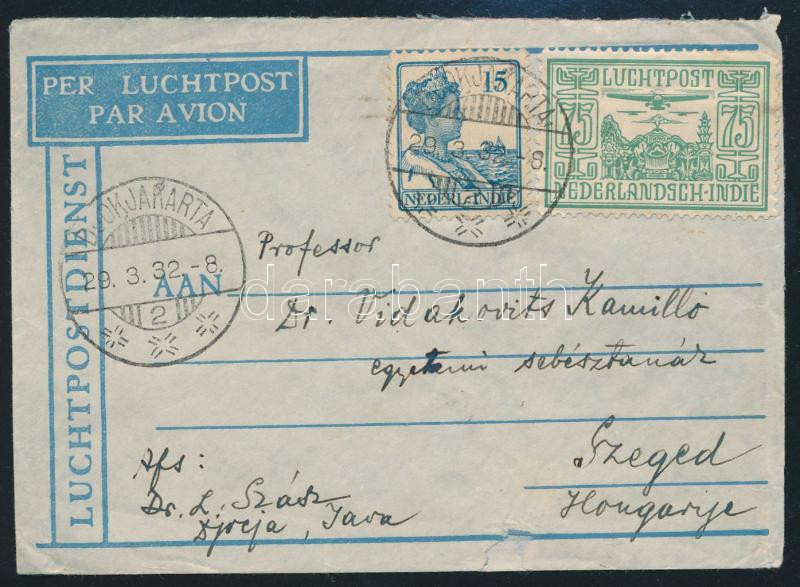 PER LUCHTPOST
PAR AVION
LUCHTPOSTDIENST
15
NEDERL-INDIE
LUCHTPOST
75 75
NEDERLANDSCH-INDIE
DJOKJAKARTA
29.3.32.-8.
DJOKJAKARTA
29.3.32.-8.
2
AAN
Professor
Dr. Vidakovits Kamilló
egyetemi sebésztanár
Szeged
Hongarije
Afs:
Dr. L. Szász
Djocja, Java
darabanth